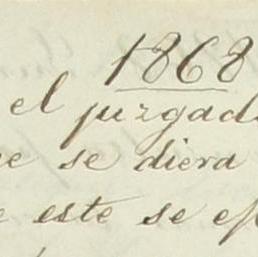 1868
el juzgad
se diera
este se ef